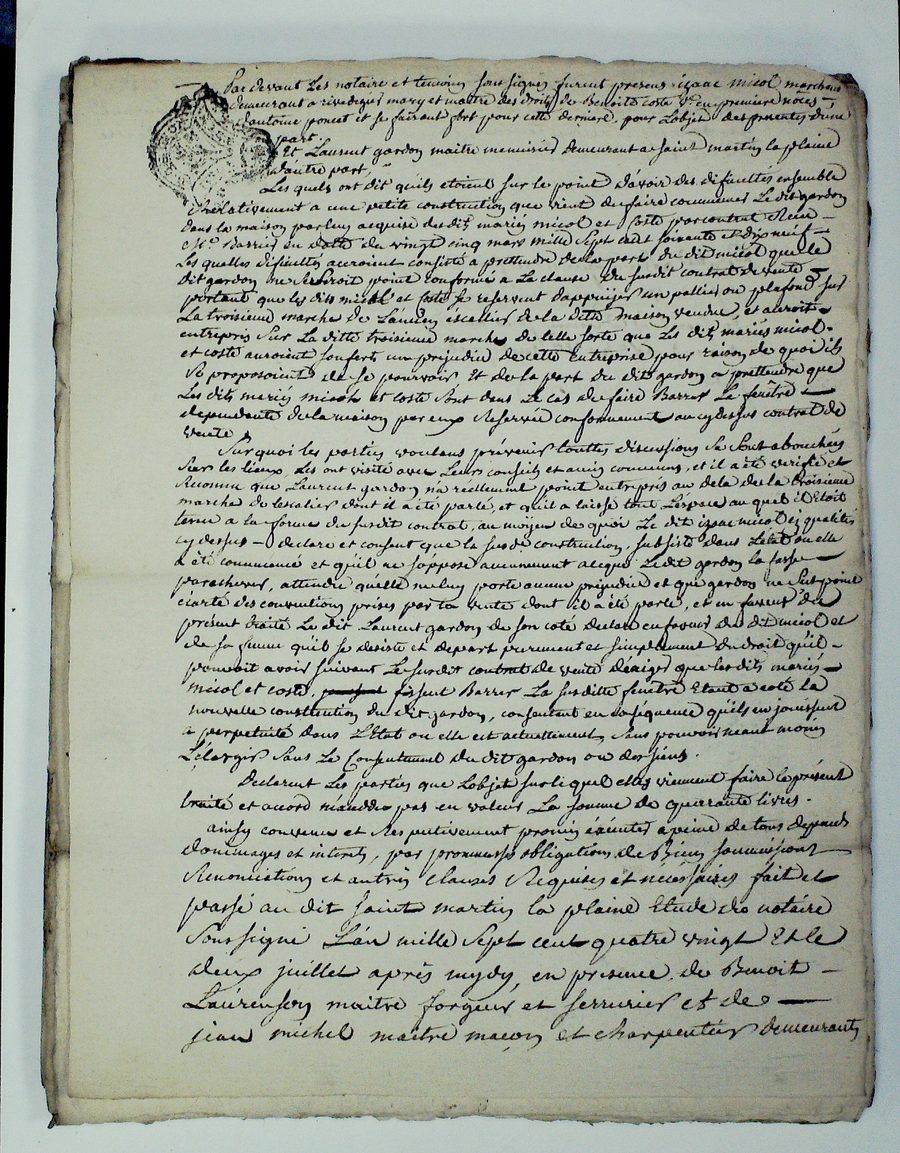 Par devant Les notaire et temoins soussignés furent presens izaac micol marchand
demeurant a rivedegier mary et maitre des droits de Benoite coste Ve en premiere nôces
d'antoine poncet et se faisant fort pour cette derniere, pour L'objet des presentes d'une
part.
Et Laurent gardon maitre menuisier Demeurant a Saint martin la plaine
d'autre part,
Les quels ont dit qu'ils etoient sur le point d'avoir des dificultés ensemble
Relativement a une petite construction que vient de faire commencer Le dit gardon
dans la maison par luy acquise des dits mariés micol et Coste par contrat Reçu
Me Barrier en datte du vingt cinq mars mille Sept cent soixante et dix neuf
Les quelles dificultés auroient consisté a prettendre de la part du dit micol que le
dit gardon ne se seroit point conformé a La clause du susdit contrat de vente
portant que les dits micol et Coste se reservent d'appuyer un pallier ou plafond sur
La troisieme marche de L'ancien escallier de la ditte maison vendue, et auroit
entrepris sur La ditte troisieme marche de telle sorte que Les dits mariés micol
et coste auroient souffert un prejudice de cette Entreprise pour raison de quoi ils
se proposoient de se pourvoir Et de la part du dit gardon a prettendre que
Les dits mariés micol et Coste sont dans Le cas de faire Barrer La fenêtre
dependante de la maison par eux Reservée conformement au cy dessus contrat de
vente
Sur quoi les parties voulans prévenir touttes discussions se sont abouchées
sur les lieux, Les ont visité avec Leurs conseils et amis communs, et il a été verifié et
Reconnu que Laurent gardon n'a réellement point entrepris au dela de la troisieme
marche de l'escalier dont il a été parlé, et qu'il a laissé tout L'espace au quel il Etoit
tenu a la forme du susdit contrat, au moyen de quoi Le dit izaac micol es qualités
cy dessus declare et consent que la susde construction, subsiste dans L'état ou elle
a été commencé et qu'il ne s'oppose aucunement a ce que Le dit gardon la fasse
parachever, attendu qu'elle ne luy porte aucun prejudice et que gardon ne s'est point
écarté des conventions prises par la vente dont il a été parlé, et en faveur du
présent traité Le dit Laurent gardon de son coté declare en faveur du dit micol et
de sa femme qu'il se desiste et depart purement et simplement du droit qu'il
pouvoit avoir suivant Le susdit contrat de vente d'éxiger que les dits mariés
micol et coste, fissent Barrer La susditte fenêtre Etant a coté la
nouvelle construction du dit gardon, consentant en conséquence qu'ils en jouissent
a perpetuité dans L'Etat ou elle est actuellement, Sans pouvoir neant moins
L'élargir Sans Le Consentement Du dit gardon ou des siens.
Declarent Les parties que L'objet sur le quel elles viennent faire le présent
traité et accord n'excedde pas en valeur La somme de quarante livres.
ainsy convenu et Respectivement promis éxécuter a peine de tous depends
dommages et interets, par promesses obligations de Biens soumissions
Renonciations et autres clauses Requises et necessaires fait et
passé au dit Saint martin la plaine Etude du notaire
Soussigné L'an mille Sept cent quatre vingt Et le
deux juillet après mydy, en présence de Benoit
Laurenson maitre forgeur et serrurier et de
jean michel maitre maçon et charpentier demeurants